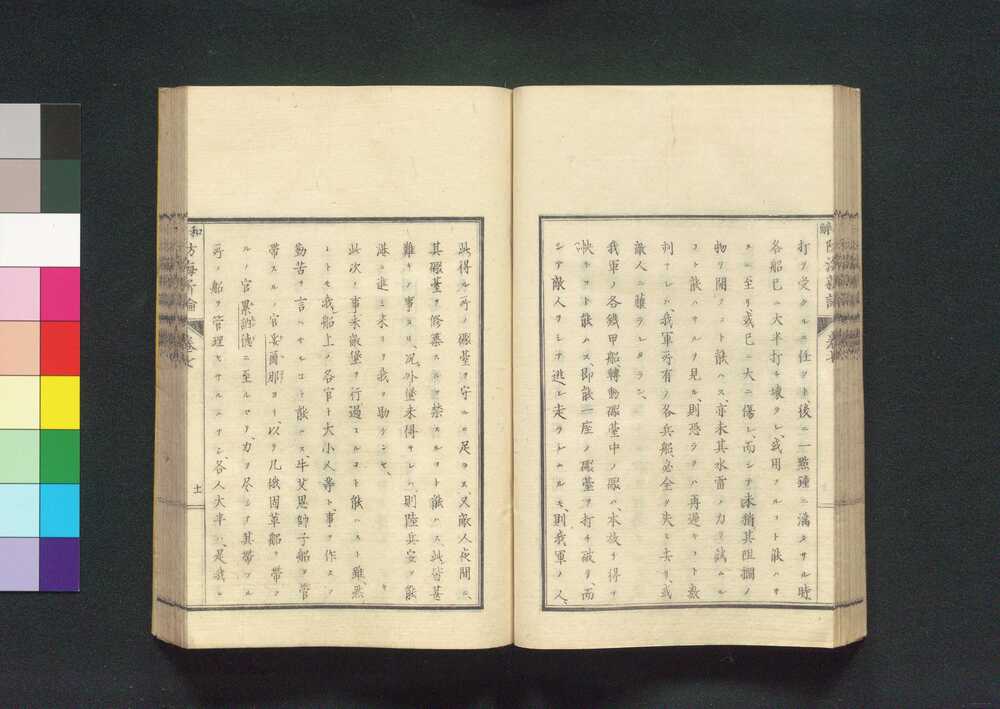 打ヲ受クルニ任ツト、後ニ一點鍾ニ滿タサル時
各船已ニ大半打チ壞タレ、或用フルコト能ハサ
スニ至リ或已ニ大ニ傷レ、而シテ未稍其阻攔ノ
物ヲ開クコト能ハス、亦未其水雷ノ力ヲ試ムル
コト能ハサルヲ見ル、則恐ラクハ再過キコト數
刻ナレハ、我軍所有ノ各兵船、必全ク失ヒ去リ或
敵人ニ虜ラレタラン、
我軍ノ各鐵甲船轉動礮臺中ノ礮ハ、本放リ得テ
快キコト能ハス、即能一座ノ礮臺ヲ打チ破ヲ、而
シテ敵人ヲシテ逃ヒ走ラシムルモ、則我軍ノ人、
此得ル所ノ礮臺ヲ守ルニ足ラス、又敵人夜間ニ、
其礮臺ヲ修葺スルヲ禁スルコト能ハス、此皆甚
難キノ事ナリ、況外堡未得サレハ、則陸兵妄ニ能
港ニ進ミ來リテ我ヲ助ケンヤ、
此次ノ事未敵堡ヲ行過スルコト能ハスト雖、然
レトモ我船上ノ各官ト大小人等ト、事ヲ作スノ
勤苦ヲ言ハサルコト能ハス、牛艾恩帥子船ヲ管
帶スルノ官妥爾那ヨリ、以テ凡緻固革船ヲ帶フ
ルノ官累訥德ニ至ルマテ、力ヲ尽シテ其帶フル
所ノ船ヲ管理セサルハナシ、各人大半ハ是我ト
卷七
十一